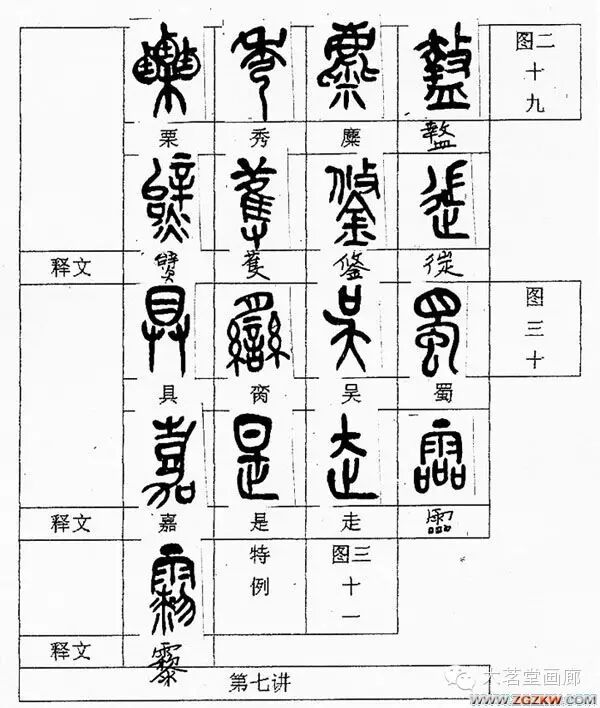 图二
十
九
栗 秀 麋 盩
释文 蒦 鋚
图
三
十
具 脔 吴 蜀
释文 嘉 是 走 霝
特
例
图三
十
一
释文
第七讲
大茗堂画廊
www.ZGZKW.com